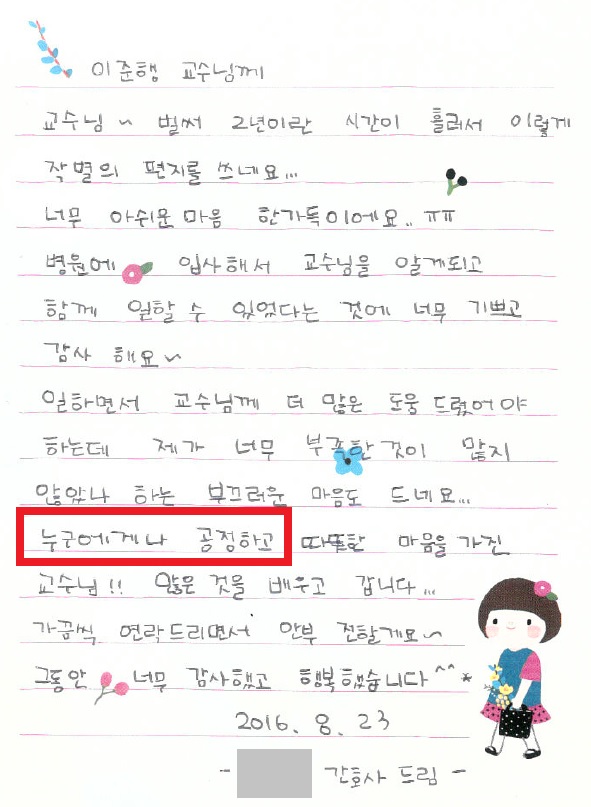 이준행 교수님께
교수님~ 벌써 2년이란 시간이 흘러서 이렇게
작별의 편지를 쓰네요...
너무 아쉬운마음 한가득이에요.. ㅠㅠ
병원에 입사해서 교수님을 알게되고
함께 일할 수 있었다는 것에 너무 기쁘고
감사 해요~
일하면서 교수님께 더 많은 도움 드렸어야
하는데 제가 너무 부족한 것이 많지
않았나 하는 부끄러운 마음도 드네요...
누구에게나 공정하고 따뜻한 마음을 가진
교수님!! 많은 것을 배우고 갑니다...
가끔씩 연락드리면서 안부 전할게요~
그동안 너무 감사했고 행복했습니다^^*
2016. 8. 23
- 간호사 드림 -